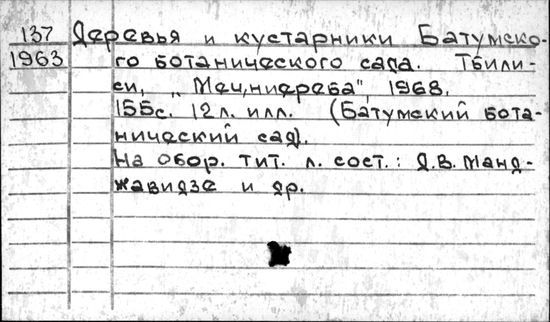 137 Деревья и кустарники Батумско-
1963 го ботанического сада. Тбили-
си, „Мецниереба", 1968.
155с. 12 л. илл. (Батумский бота-
нический сад).
На обор. тит. л. сост.: Д.В. Манд-
жавидзе и др.